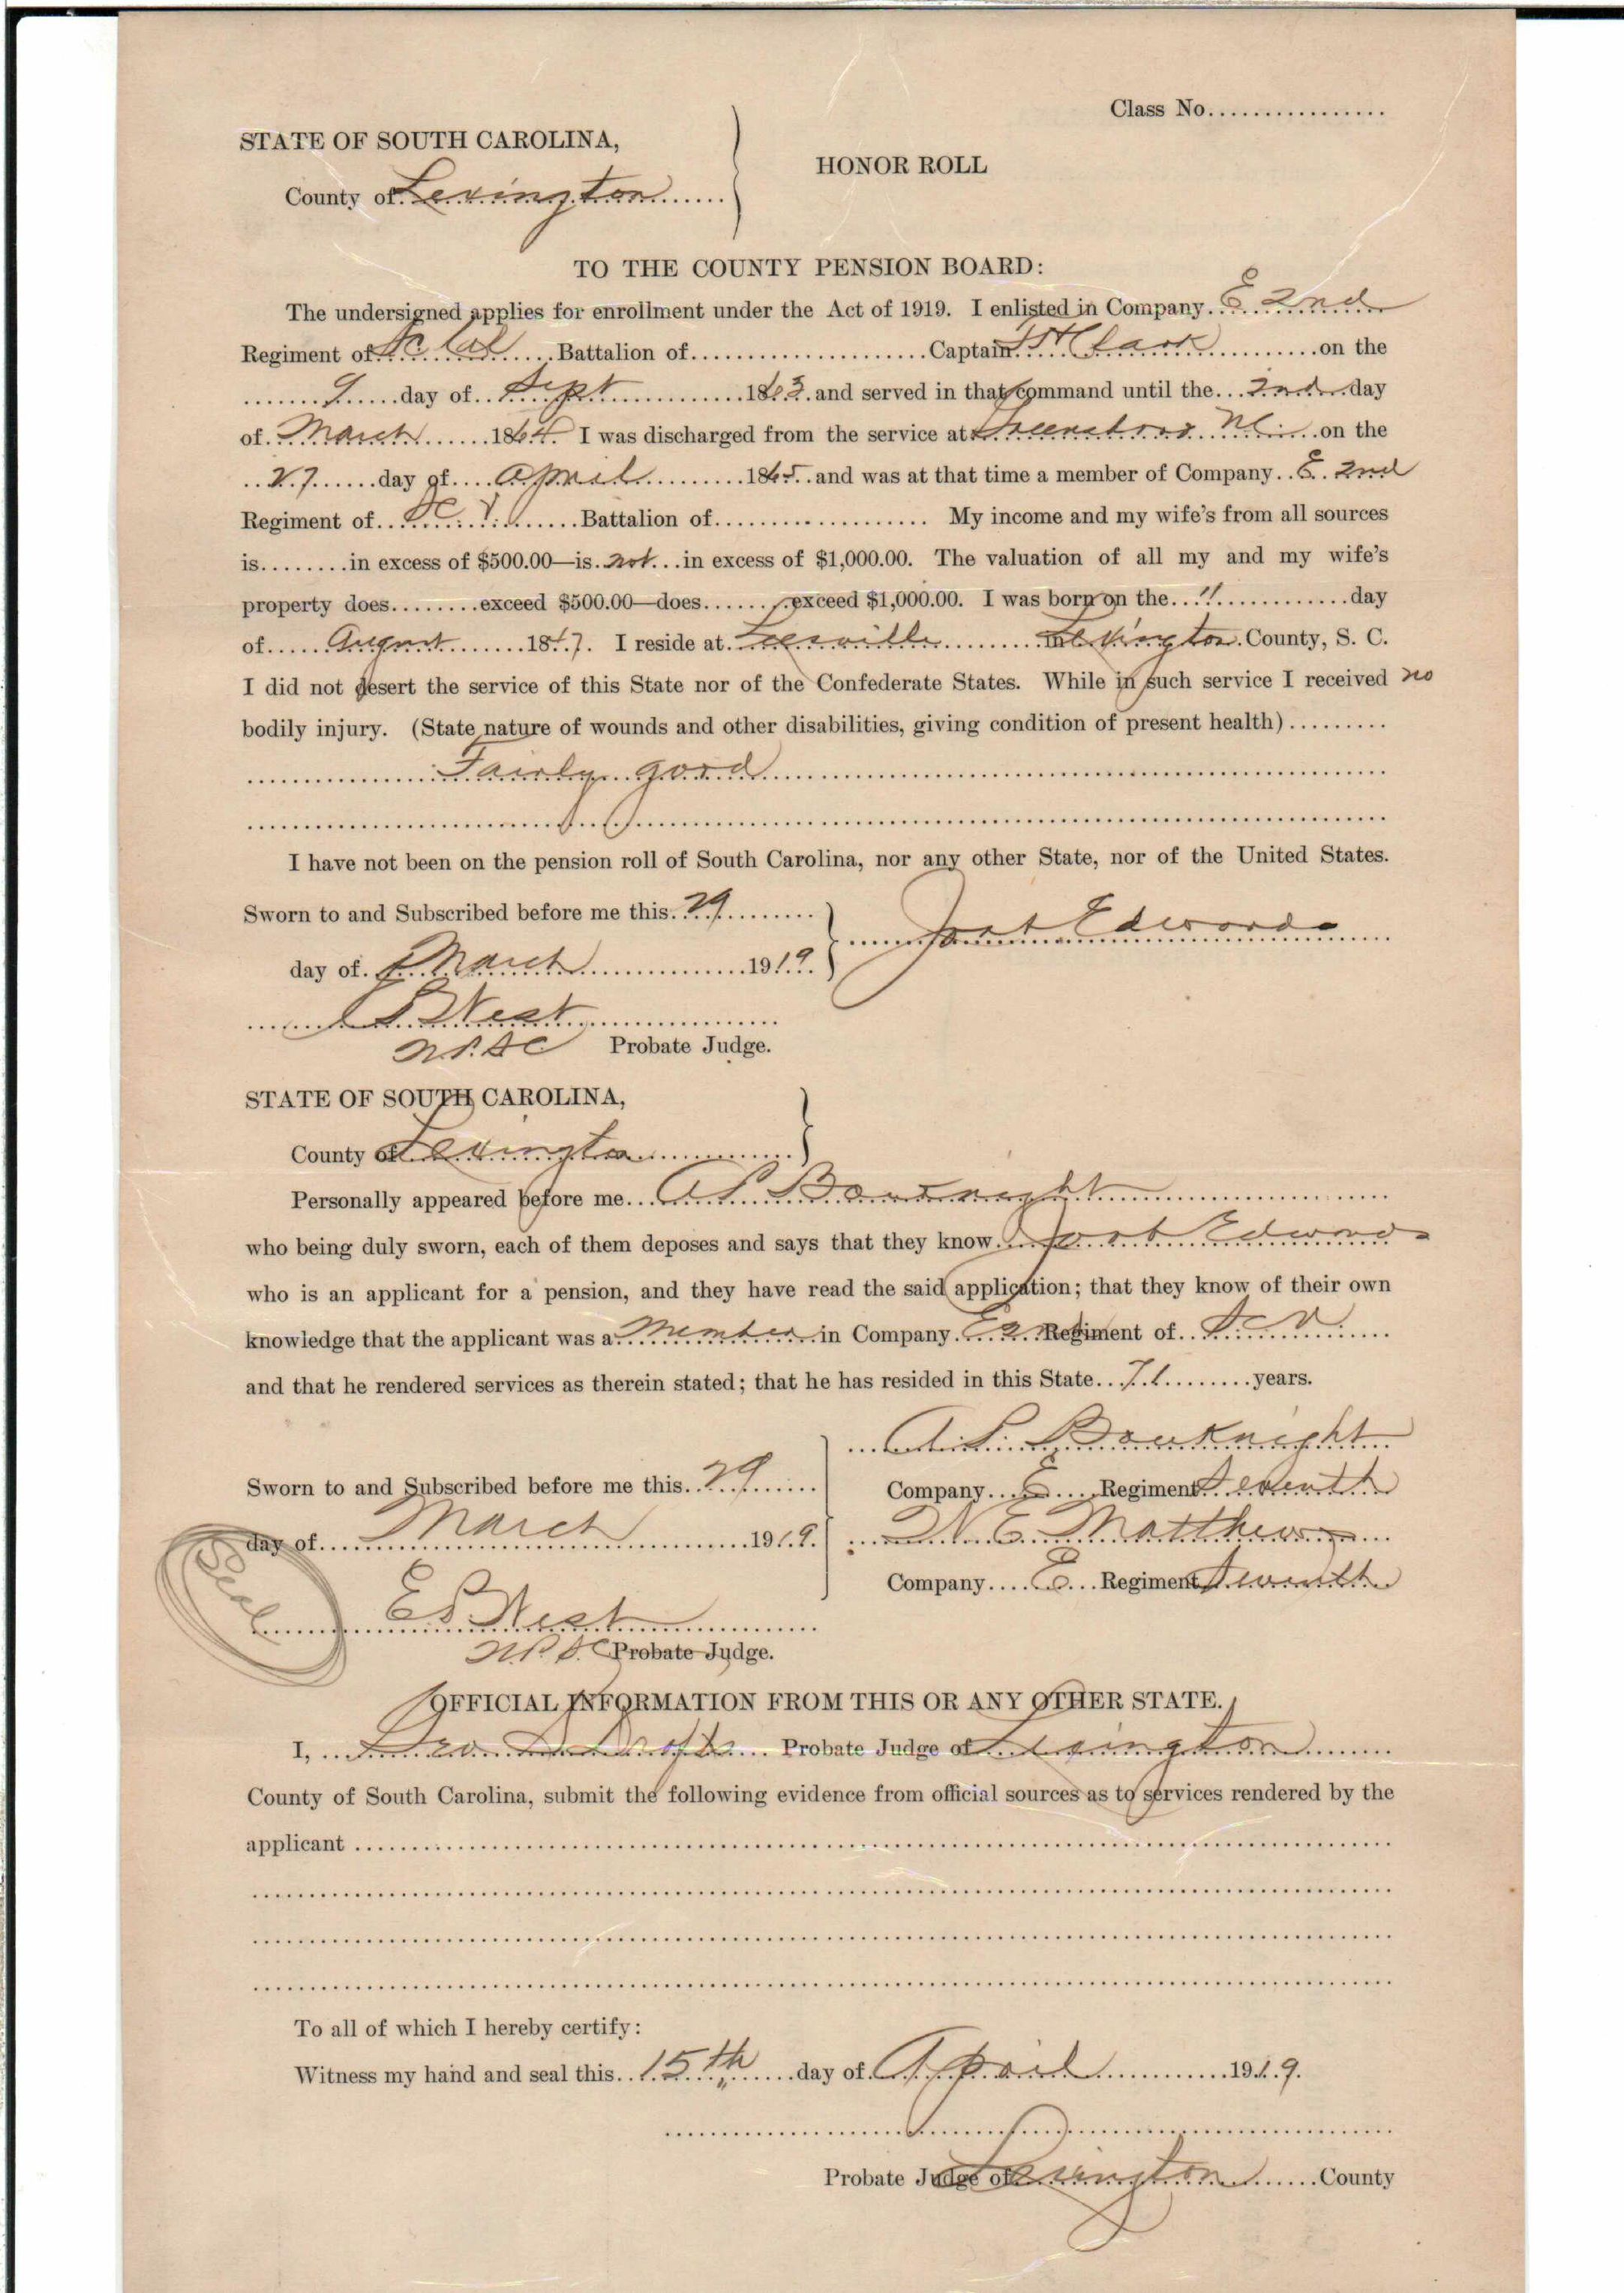 Class No.
STATE OF SOUTH CAROLINA,
HONOR ROLL
County of Lexington
TO THE COUNTY PENSION BOARD:
The undersigned applies for enrollment under the Act of 1919. I enlisted in Company E 2nd
Regiment of Battalion of Captain Clark on the
9 day of Sept 1863 and served in that command until the 2nd day
of March 1864. I was discharged from the service at Greensboro NC on the
27 day of April 1865 and was at that time a member of Company E 2nd
Regiment of SC V Battalion of My income and my wife's from all sources
is in excess of $500.00—is not in excess of $1,000.00. The valuation of all my and my wife's
property does exceed $500.00—does exceed $1,000.00. I was born on the 11 day
of August 1847. I reside at Leesville in Lexington County, S. C.
I did not desert the service of this State nor of the Confederate States. While in such service I received no
bodily injury. (State nature of wounds and other disabilities, giving condition of present health)
Fairly good
I have not been on the pension roll of South Carolina, nor any other State, nor of the United States.
Sworn to and Subscribed before me this 29
Edwards
day of March 1919.
E S West
N.P.SC Probate Judge.
STATE OF SOUTH CAROLINA,
County of Lexington
Personally appeared before me A L Bouknight
who being duly sworn, each of them deposes and says that they know Edwards
who is an applicant for a pension, and they have read the said application; that they know of their own
knowledge that the applicant was a Member in Company E 2nd Regiment of S C V
and that he rendered services as therein stated; that he has resided in this State 71 years.
A. L. Bouknight
Sworn to and Subscribed before me this 29
Company E Regiment Seventh
day of March 1919.
E. Matthews
Company E Regiment Seventh
Seal
E S West
N.P.S.C Probate Judge.
OFFICIAL INFORMATION FROM THIS OR ANY OTHER STATE.
I, Geo S Drafts Probate Judge of Lexington
County of South Carolina, submit the following evidence from official sources as to services rendered by the
applicant
To all of which I hereby certify:
Witness my hand and seal this 15th day of April 1919.
Probate Judge of Lexington County